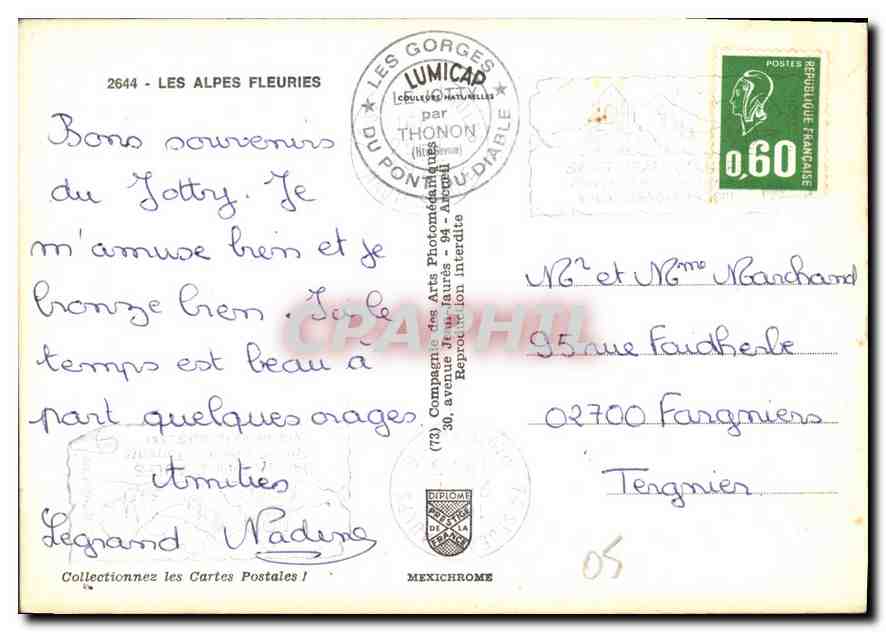 2644 - LES ALPES FLEURIES
Bons souvenirs
du Jotty. Je
m'amuse bien et je
bronze bien. Ici le
temps est beau à
part quelques orages
Amitiés
Legrand Nadine
Collectionnez les Cartes Postales !
LES GORGES
DU PONT DU DIABLE
LUMICAP
COULEURS NATURELLES
LE JOTTY
par
THONON
(Hte Savoie)
(73) Compagnie des Arts Photomécaniques
30, avenue Jean-Jaurès - 94 - Arcueil
Reproduction interdite
DIPLOME
PRESTIGE
DE LA
FRANCE
MEXICHROME
POSTES
RÉPUBLIQUE FRANÇAISE
0,60
Mr et Mme Marchand
95 rue Faidherbe
02700 Fargniers
Tergnier
05
CPAPHIL